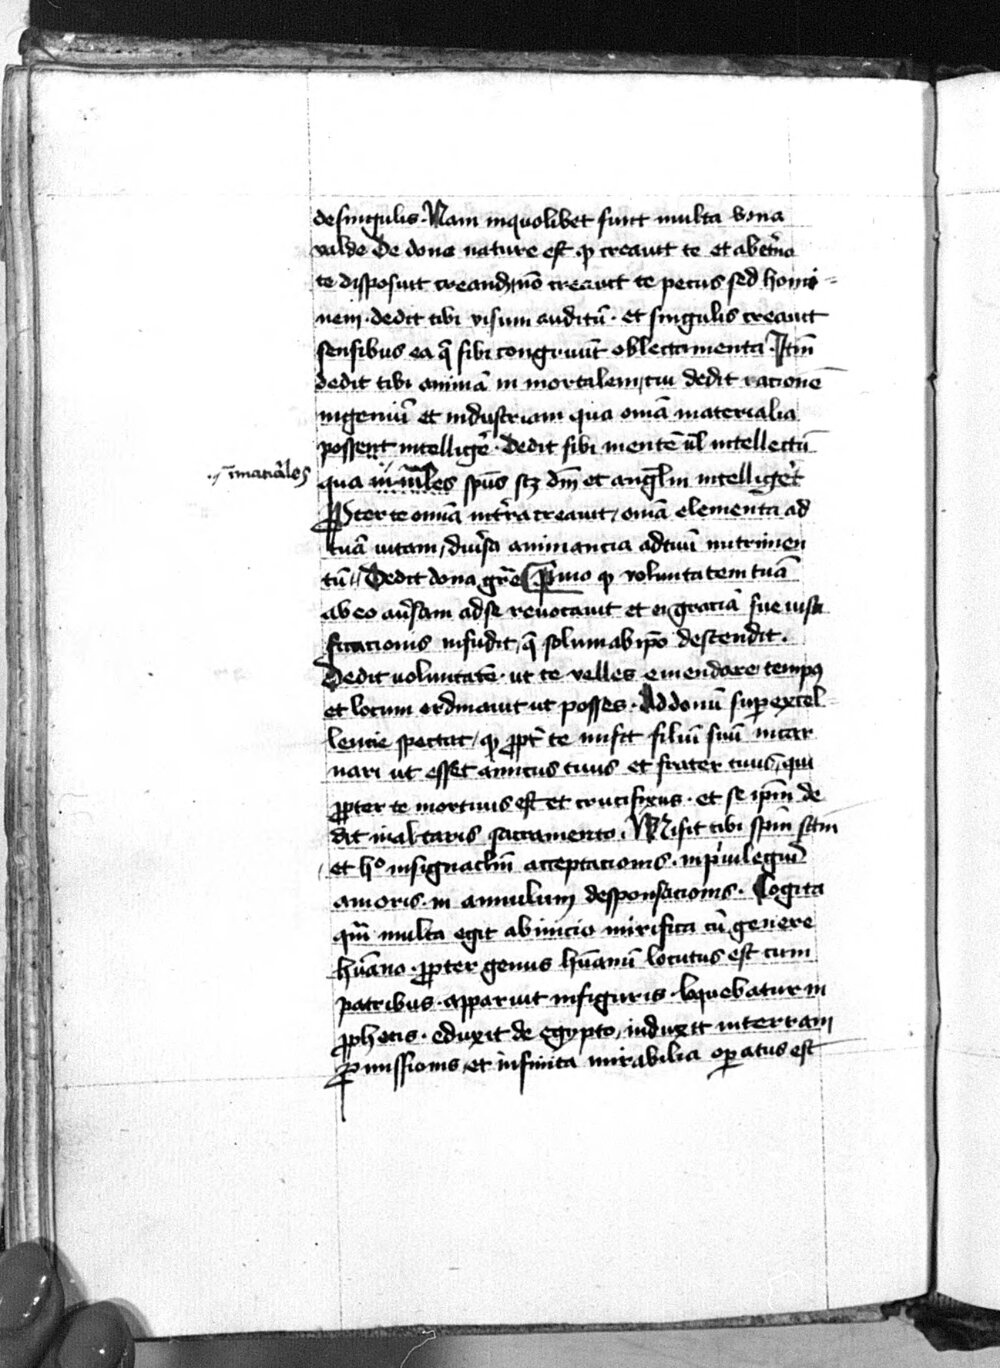 de singulis. Nam in quolibet sunt multa bona
valde De dono nature est qꝫ creauit te et ab et̾no
te disposuit creandū nō creauit te pecus sed homi=
nem. dedit tibi visum auditū. et singulis creauit
sensibus ea q̄ sibi congruūt oblectamenta. Itm̄
dedit tibi animā in mortalem, cui dedit racionē
ingeniū et industriam qua om̄ia materialia
possent intellige᷑. Dedit sibi mentē ul̄ intellectū
īmat̾iales
qua sp̄us scꝫ dm̄ et angl̄m intellige᷑t
Propter te omīa creauit, omīa elementa ad
tuā vitam, diu̾sa animancia ad tuū nutrimen
tū. Dedit dona gr̄e Primo qꝫ voluntatem tuā
ab eo au̾sam ad se reuocauit et ei graciā sue iusti
ficacionis infudit, q̄ solum ab ip̄o descendit.
Dedit voluntatē. ut te velles emendare tempꝰ
et locum ordinauit ut posses. Ad donū superexcel
lencie spectat, qꝫ ꝓpt̾ te misit filiū suū incar
nari ut esset amicus tuus et frater tuus, qui
ꝓpter te mortuus est et crucifixus. et se ip̄m de
dit in altaris sacramento. Misit tibi sp̄m sc̄m
et hᵒ in signaclm̄ acceptacionis. in p̾uilegiū
amoris. in annulum desponsacionis. Cogita
qm̄ multa egit ab inicio mirifica cū genere
hūano. ꝓpter genus hūanū locutus est cum
patribus. apparuit in figuris. loquebatur in
ꝓphetis. eduxit de egypto, induxit in terram
ꝓmissionis, et infinita mirabilia oꝑatus est